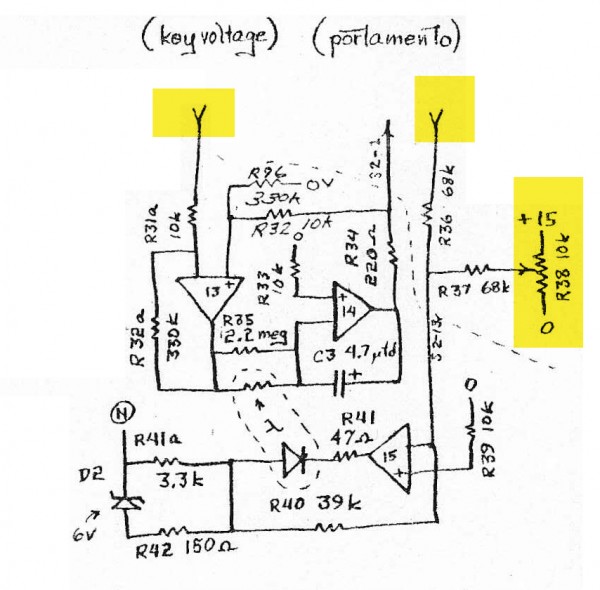 (key voltage) (portamento)
R96
330k
0V
R32 10k
S2-1
68k
R36
R31a
10k
+15
R38 10k
0
0
R33
10k
R34
220Ω
R37 68k
13
+
14
+
R32a
330k
R35
2.2 meg
C3 4.7μfd
+
S2-13r
N
λ
0
R39 10k
R41a
3.3k
R41
47Ω
15
+
D2
6V
R40 39k
R42 150Ω